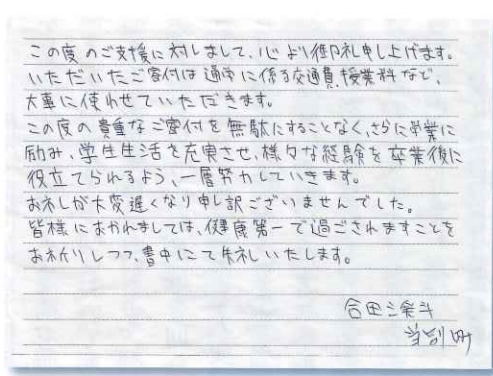 この度のご支援に対しまして、心より御礼申し上げます。
いただいたご寄付は通学に係る交通費、授業料など、
大事に使わせていただきます。
この度の貴重なご寄付を無駄にすることなく、さらに学業に
励み、学生生活を充実させ、様々な経験を卒業後に
役立てられるよう、一層努力していきます。
お礼が大変遅くなり申し訳ございませんでした。
皆様におかれましては、健康第一で過ごされますことを
お祈りしつつ、書中にて失礼いたします。
当別町